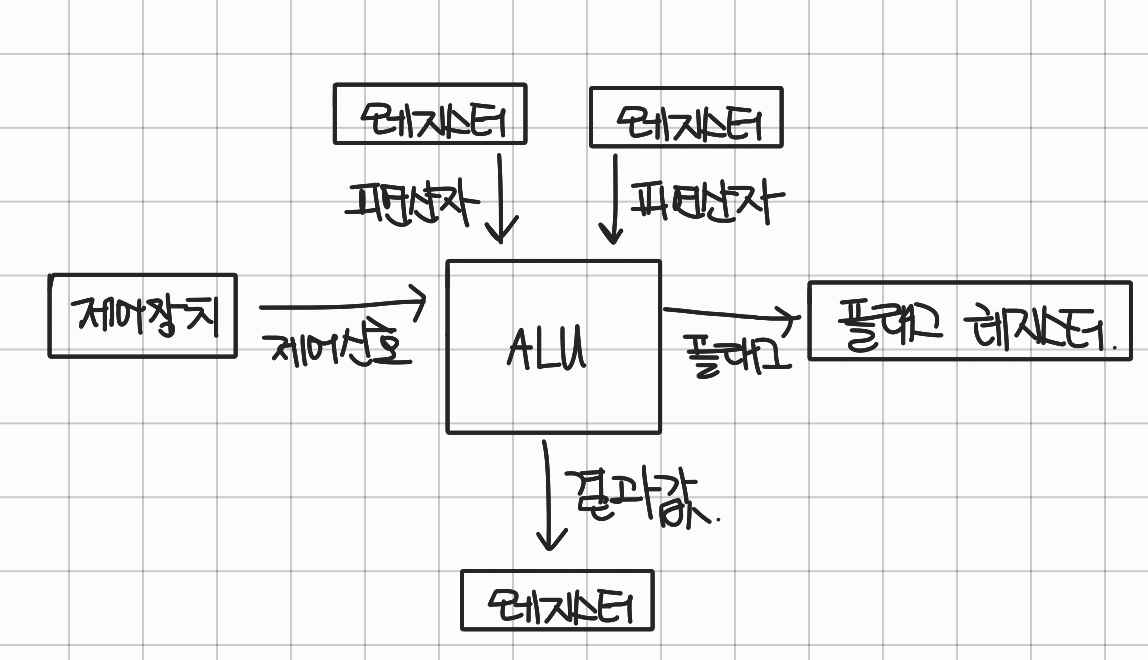 레지스터
레지스터
피연산자
피연산자
제어장치
제어신호
ALU
플래그
플래그 레지스터.
결과값.
레지스터